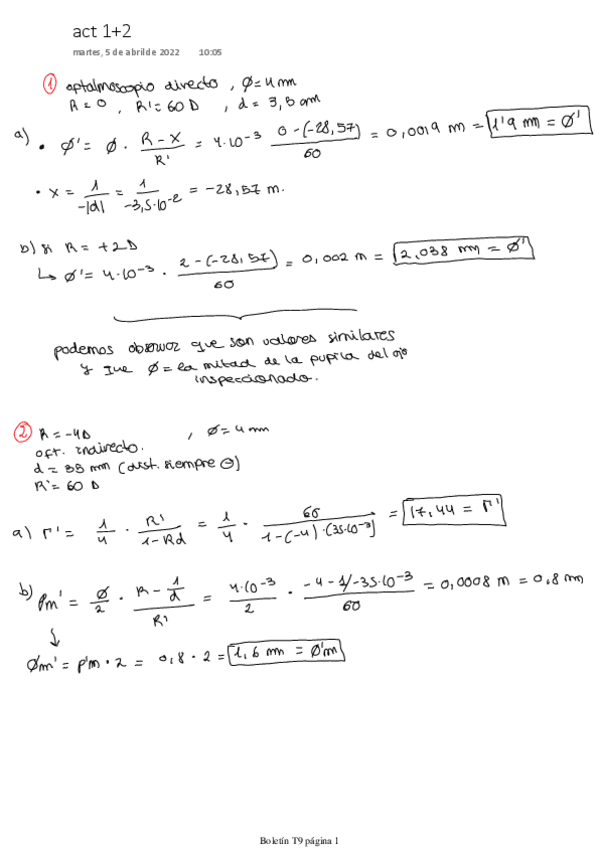 act 1+2
martes, 5 de abril de 2022 10:05
① optalmoscopio directo, φ = 4 mm
R = 0, R' = 60 D, d = 3,5 cm
a) • φ' = φ · (R - X)/R' = 4·10⁻³ (0 - (-28,57))/60 = 0,0019 m = 1'9 mm = φ'
• X = 1/-|d| = 1/-3,5·10⁻² = -28,57 m.
b) si R = +2D
↳ φ' = 4·10⁻³ · (2 - (-28,57))/60 = 0,002 m = 2,038 mm = φ'
podemos observar que son valores similares
y que φ = la mitad de la pupila del ojo
inspeccionado.
② R = -4D , φ = 4 mm
oft. indirecto.
d = 35 mm (dist. siempre ⊖)
R' = 60 D
a) Γ' = 1/4 · R'/(1 - Rd) = 1/4 · 60/(1 - (-4)·(35·10⁻³)) = 17,44 = Γ'
b) ρm' = φ/2 · (R - 1/d)/R' = 4·10⁻³/2 · (-4 - 1/-35·10⁻³)/60 = 0,0008 m = 0,8 mm
↓
φm' = ρ'm · 2 = 0,8 · 2 = 1,6 mm = φ'm
Boletín T9 página 1